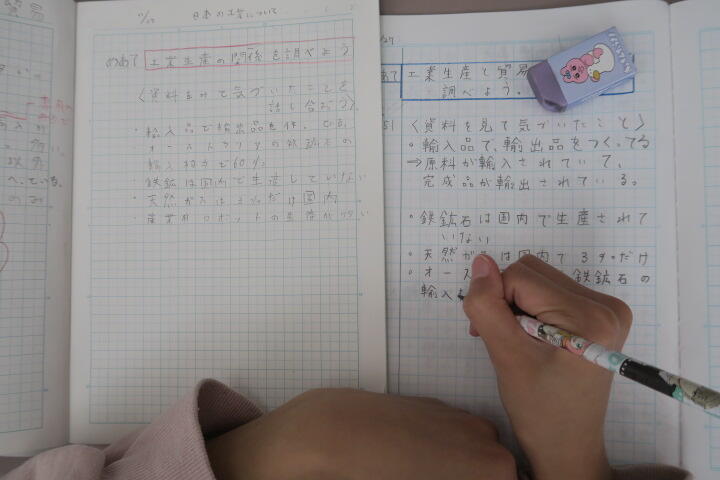 日本の工業について
めあて 工業生産の関係を調べよう
〈資料をみて気づいたことを
話し合おう〉
・輸入品で輸出品を作
オーストラリアの鉄鉱石の
輸入相手で60%
鉄鉱は国内で生産していない
・天然ガスは3%だけ国内
・産業用ロボットの生産が
貿易
めあて 工業生産と貿易
調べよう。
〈資料を見て気づいたこと〉
・輸入品で、輸出品をつくってる
⇒原料が輸入されていて、
完成品が輸出されている。
・鉄鉱石は国内で生産されて
いない
・天然ガ は国内で3%だけ
・オース 鉄鉱石の
輸入